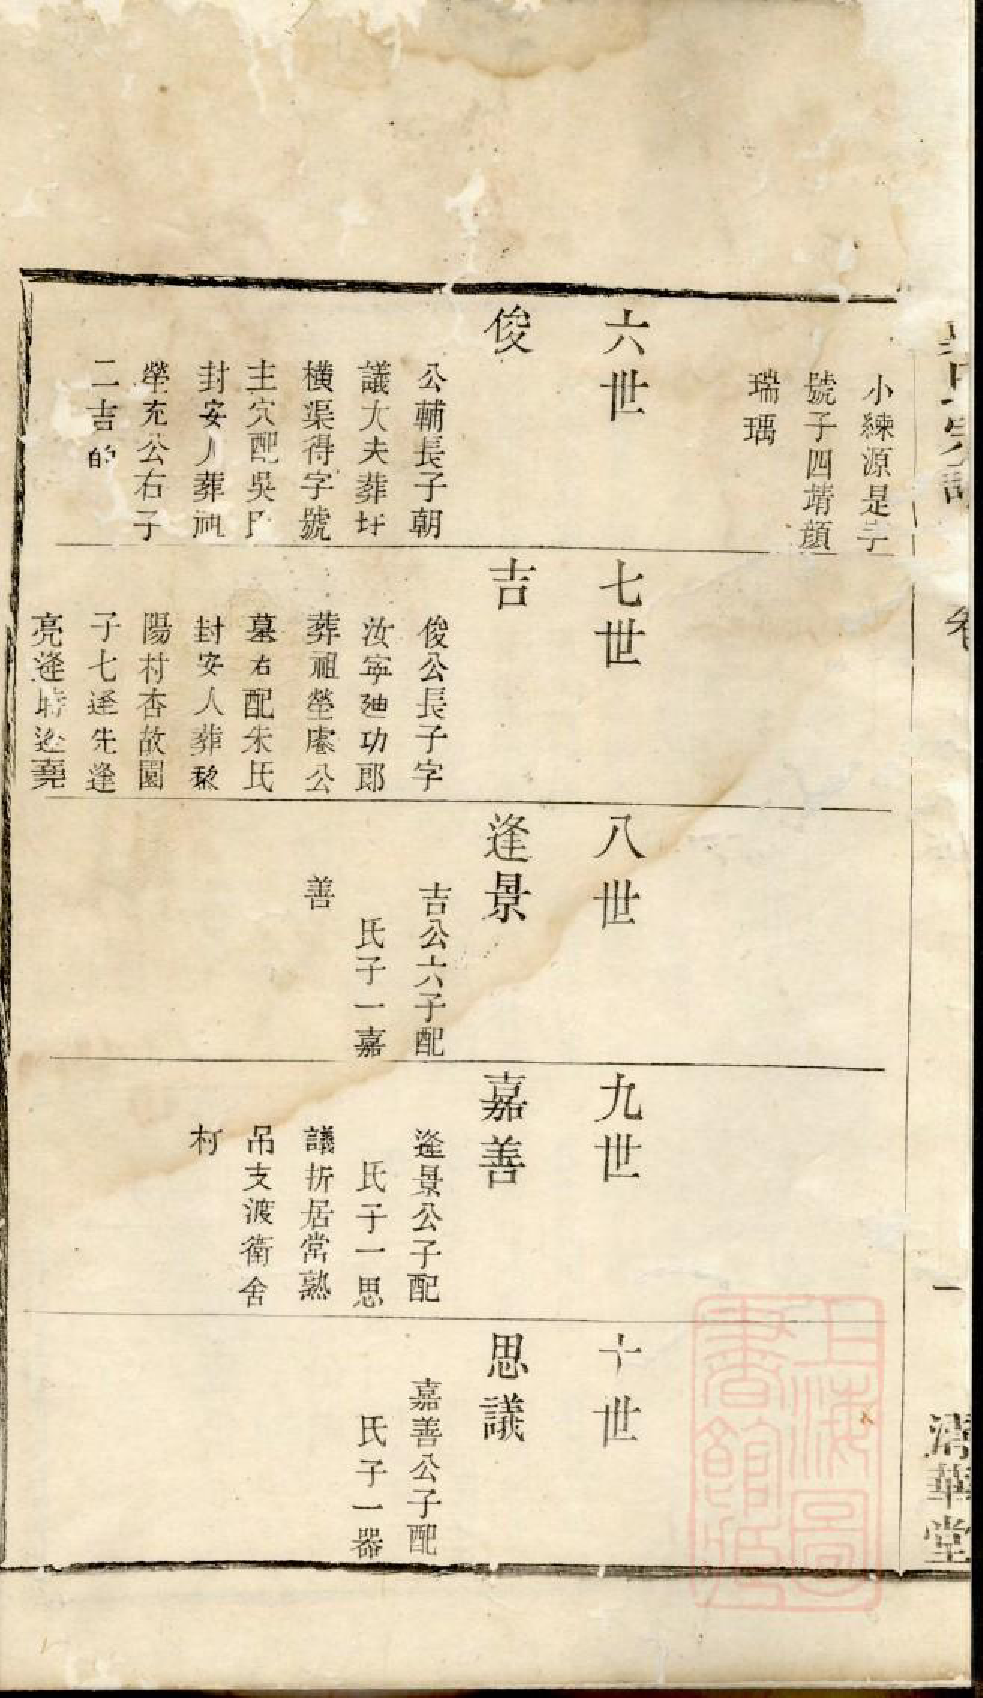 小練源是字
號子四靖顔
瑞瑀
六世
俊
公輔長子朝
議大夫葬圩
橫渠得字號
主穴配吳氏
封安人葬祖
塋充公右子
二吉的
七世
吉
俊公長子字
汝寧廸功郎
葬祖塋處公
墓右配朱氏
封安人葬黎
陽村杏故園
子七逢先逢
亮逢時逢堯
八世
逢景
吉公六子配
氏子一嘉
善
九世
嘉善
逢景公子配
氏子一思
議折居常熟
吊支渡衛舍
村
十世
思議
嘉善公子配
氏子一器
氏宗譜
卷
一
清華堂
上海圖
書館